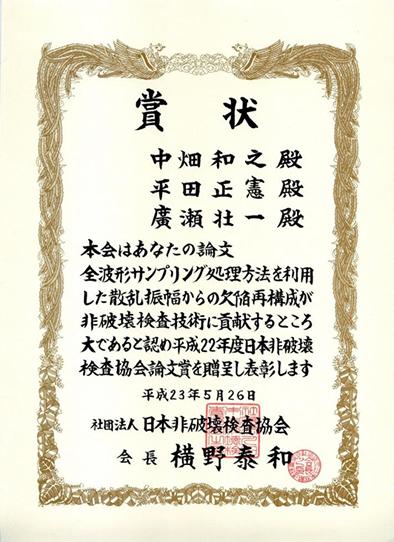 賞状
中畑和之殿
平田正憲殿
廣瀬壮一殿
本会はあなたの論文
全波形サンプリング処理方法を利用
した散乱振幅からの欠陥再構成が
非破壊検査技術に貢献するところ
大であると認め平成22年度日本非破壊
検査協会論文賞を贈呈し表彰します
平成23年5月26日
社団法人日本非破壊検査協会
会長 横野泰和